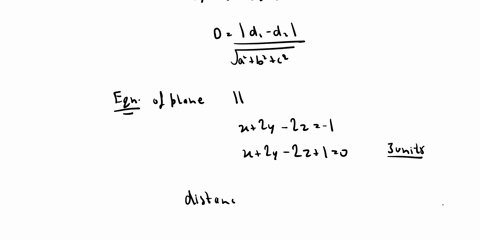 D = |d₁ - d₂| / √a²+b²+c²
Eqn. of plane ||
x+2y-2z=-1
x+2y-2z+1=0 3units
distanc